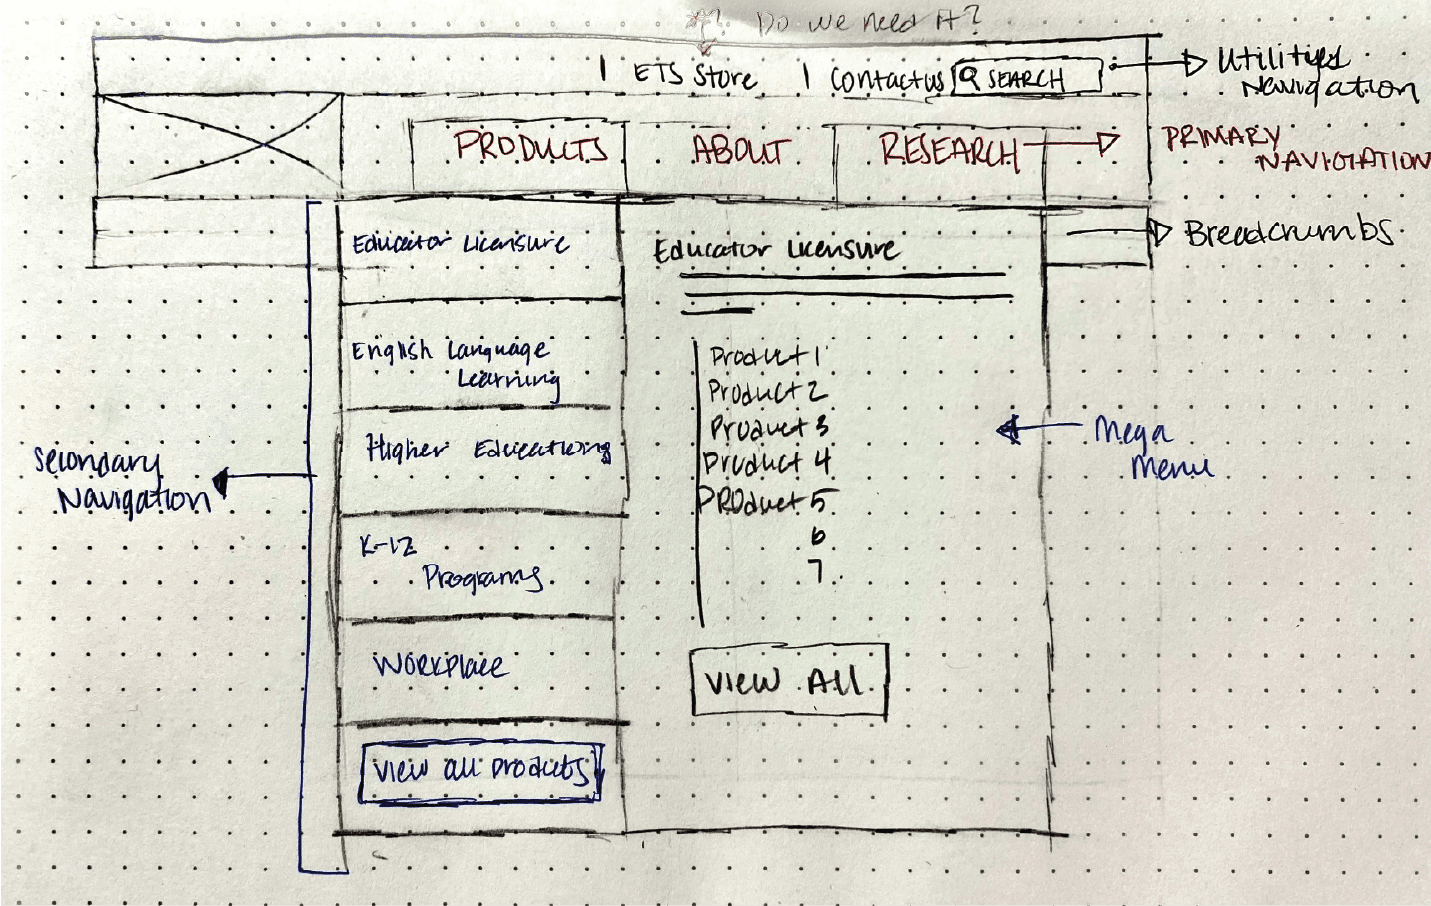 *? Do we need it?
| ETS Store | Contact us SEARCH
Utilities
Navigation
PRODUCTS ABOUT RESEARCH
PRIMARY
NAVIGATION
Breadcrumbs
Educator Licensure
English Language
Learning
Higher Education
K-12
Programs
Workplace
View all products
Secondary
Navigation
Educator Licensure
Product 1
Product 2
Product 3
Product 4
PRoduct 5
6
7
VIEW ALL
Mega
Menu